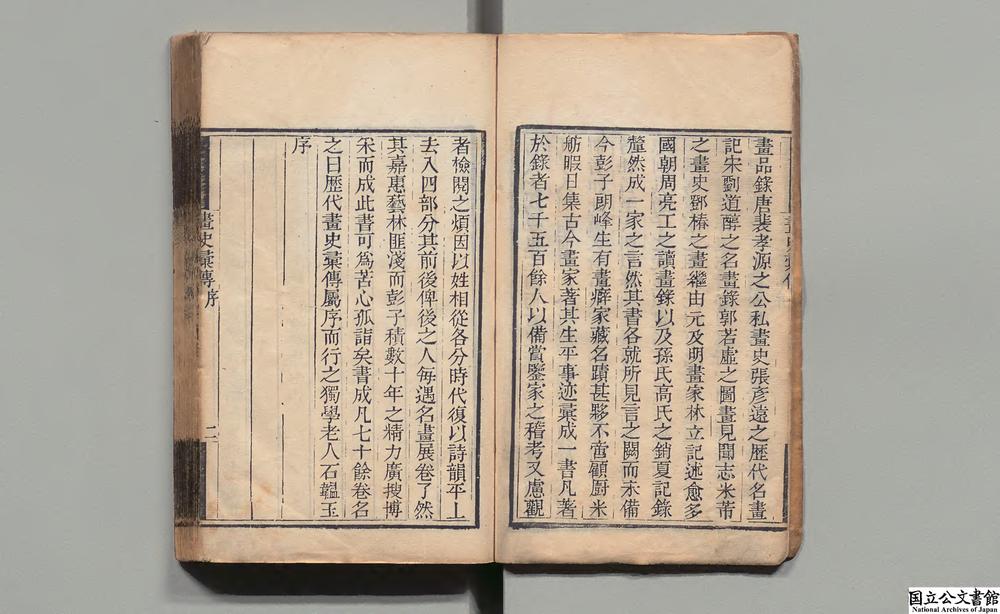 畫品錄唐裴孝源之公私畫史張彥遠之歷代名畫
記宋劉道醇之名畫錄郭若虛之圖畫見聞志米芾
之畫史鄧椿之畫繼由元及明畫家林立記述愈多
國朝周亮工之讀畫錄以及孫氏高氏之銷夏記錄
釐然成一家之言然其書各就所見言之闕而未備
今彭子朗峰生有畫癖家藏名蹟甚夥不啻顧厨米
舫暇日集古今畫家著其生平事迹彙成一書凡著
於錄者七千五百餘人以備賞鑒家之稽考又慮觀
者檢閱之煩因以姓相從各分時代復以詩韻平上
去入四部分其前後俾後之人每遇名畫展卷了然
其嘉惠藝林匪淺而彭子積數十年之精力廣搜博
采而成此書可為苦心孤詣矣書成凡七十餘卷名
之曰歷代畫史彙傳屬序而行之獨學老人石韞玉
序
畫史彙傳序
二
国立公文書館
National Archives of Japan